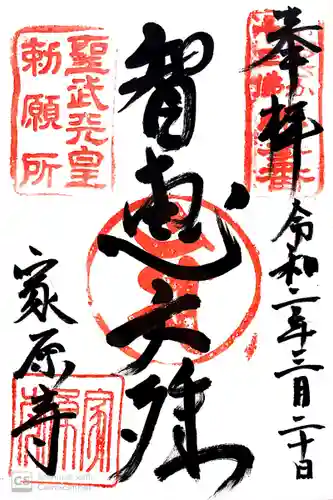 奉拝
令和二年三月二十日
智恵文殊
家原寺
聖武天皇
勅願所
CS
CamScanner